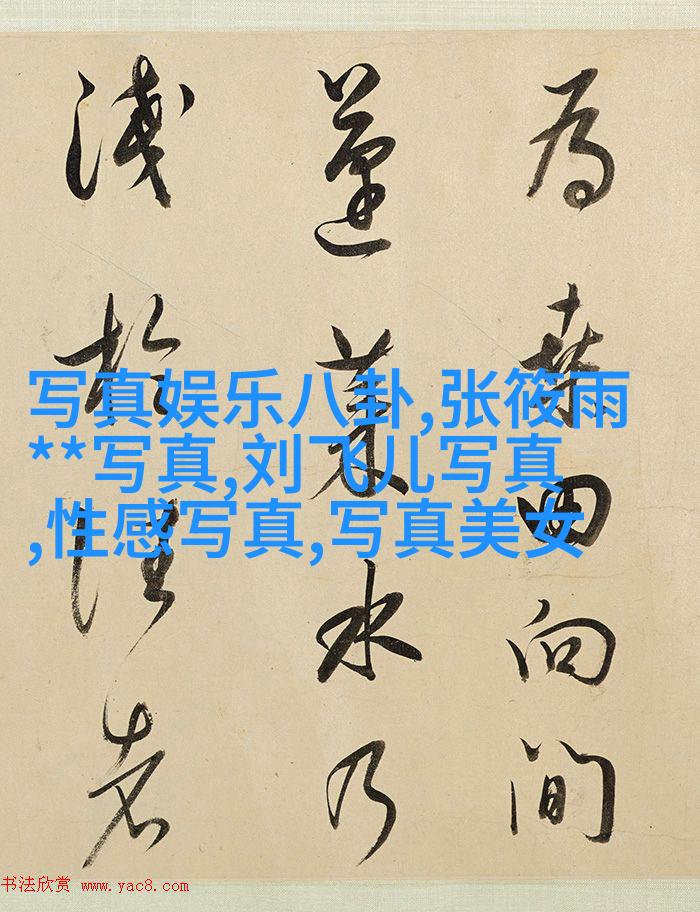 為桑田向間
蓬萊水乃
淺於往者
写真娱乐八卦,张筱雨
**写真,刘飞儿写真
,性感写真,写真美女
书法欣赏 www.yac8.com